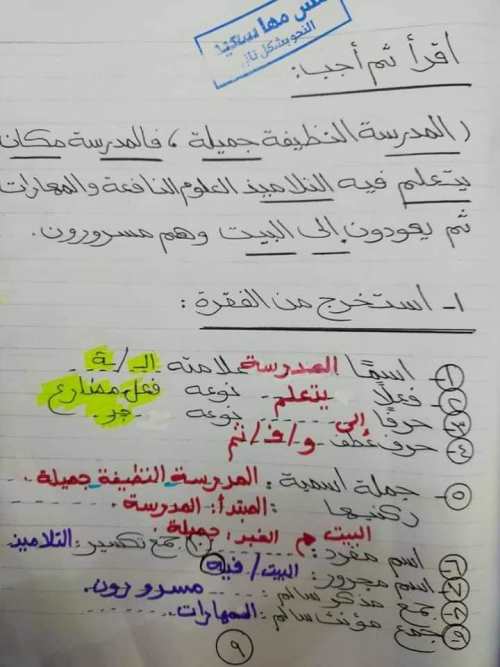 مس مها سعيد
النحو بشكل تاني
اقرأ ثم أجب:
(المدرسة النظيفة جميلة، فالمدرسة مكان
يتعلم فيه التلاميذ العلوم النافعة والمهارات
ثم يعودون إلى البيت وهم مسرورون.
١- استخرج من الفقرة:
١ اسمًا المدرسة علامته الـ / ة
٢ فعلاً يتعلم نوعه فعل مضارع
٣ حرفًا إلى نوعه جر
٤ حرف عطف و / ف / ثم
٥ جملة اسمية: المدرسة النظيفة جميلة.
ركنيها: المبتدأ: المدرسة
م الخبر: جميلة.
٦ اسم مفرد: البيت جمع تكسير: التلاميذ
٧ اسم مجرور: البيت / فيه
٨ جمع مذكر سالم: مسرورون.
٩ جمع مؤنث سالم: المهارات.
٩